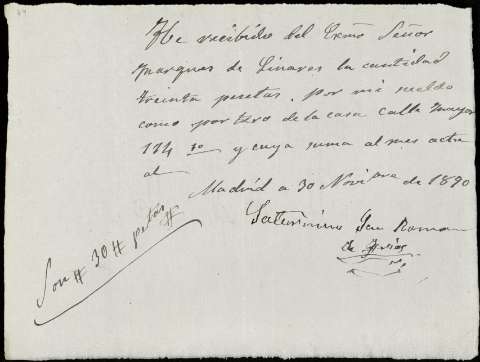 He recibido del Exmo Señor
Marques de Linares la cantidad
treinta pesetas, por mi sueldo
como portero de la casa calle mayor
114 y cuya suma al mes actu
al
Madrid a 30 Novibre de 1890
Saturnino San Roman
de Arias
Son # 30 # petas #